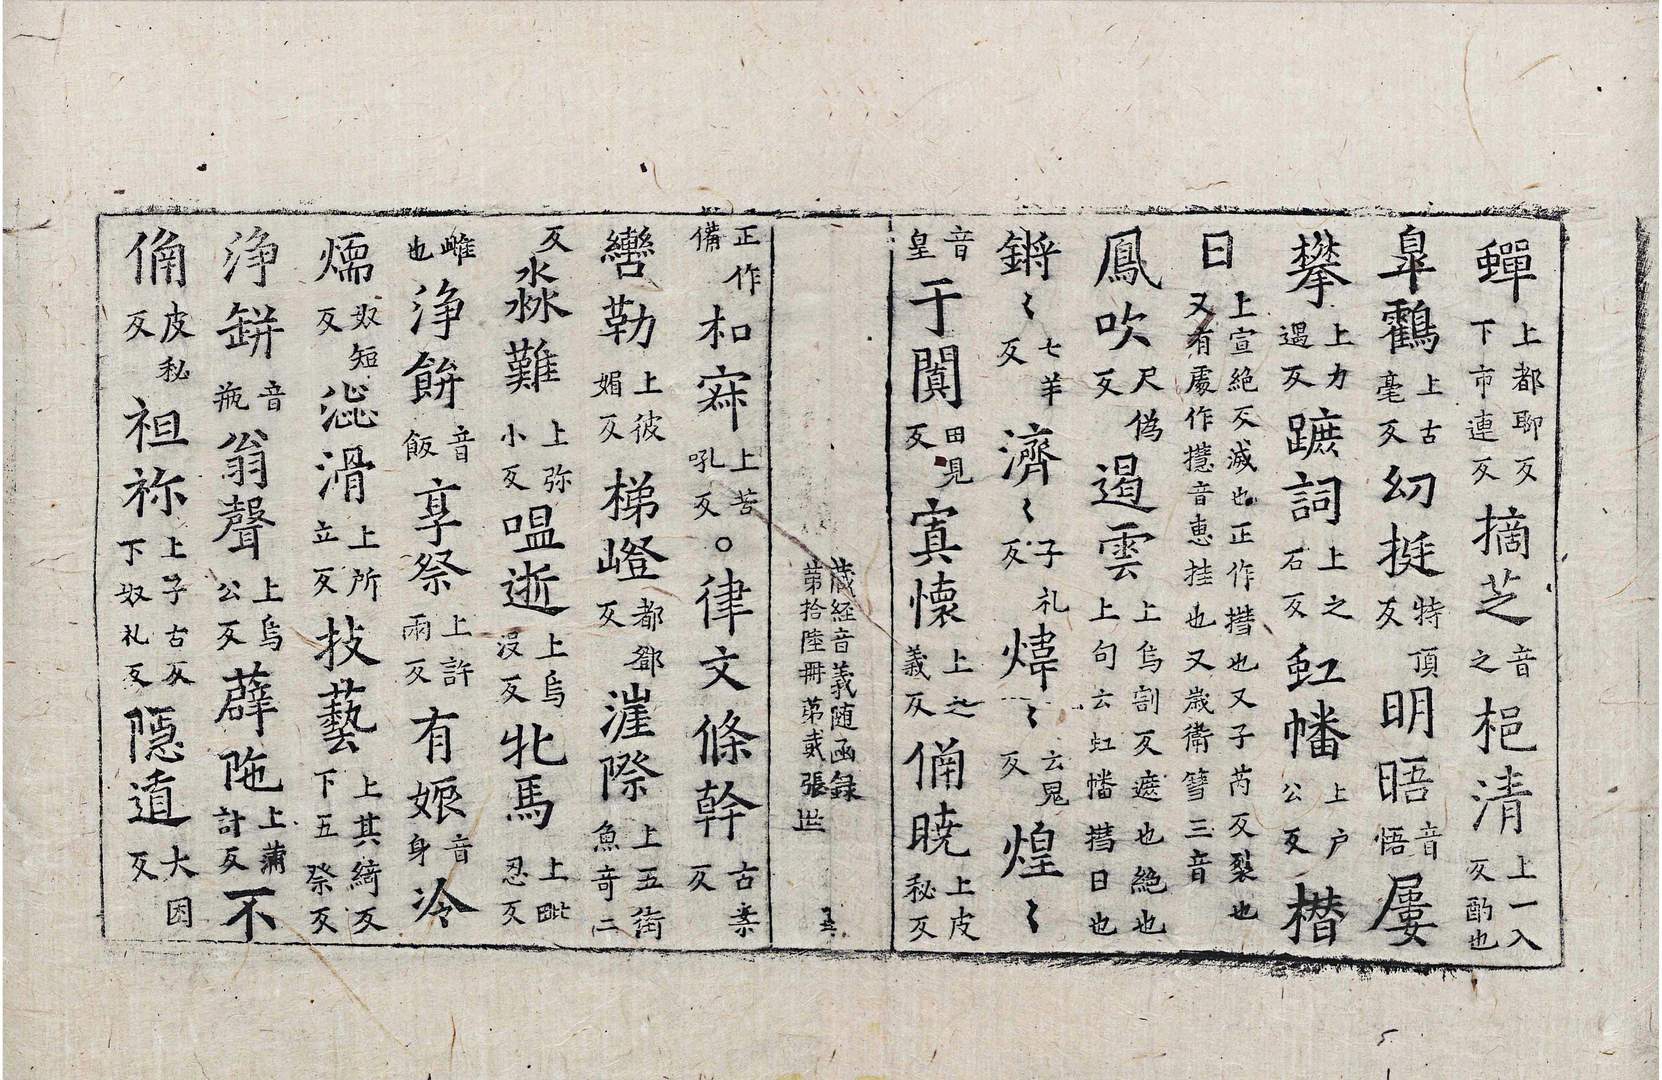 蟬上都聊反下市連反摘芝音之梔清上一入反酌也
皐鸛上古毫反幻挺特頂反明晤音悟屢
攀上力遇反蹠詞上之石反虹幡上户公反㩗
日上宣絶反滅也正作㩗也又子芮反裂也又有處作攇音惠挂也又歳衛篲三音
鳳吹尺偽反遏雲上烏割反遮也絶也上句云虹幡㩗日也
鏘〻七羊反濟〻子礼反煒〻云鬼反煌〻
音皇于闐田見反寘懷上之義反俻曉上皮秘反
藏経音義随函録
第拾陸冊第貳張世
正作備和寐上苦吼反○律文條幹古案反
轡勒上彼媚反梯嶝都鄧反漄際上五街魚奇二
反淼難上弥小反嗢逝上烏没反牝馬上毗忍反
雌也浄餅音飯享祭上許兩反有娠音身冷
煗奴短反澁滑上所立反技藝上其綺反下五祭反
浄缾音瓶翁聲上烏公反薜陁上蒲計反不
俻皮秘反祖祢上子古反下奴礼反隱遁大困反